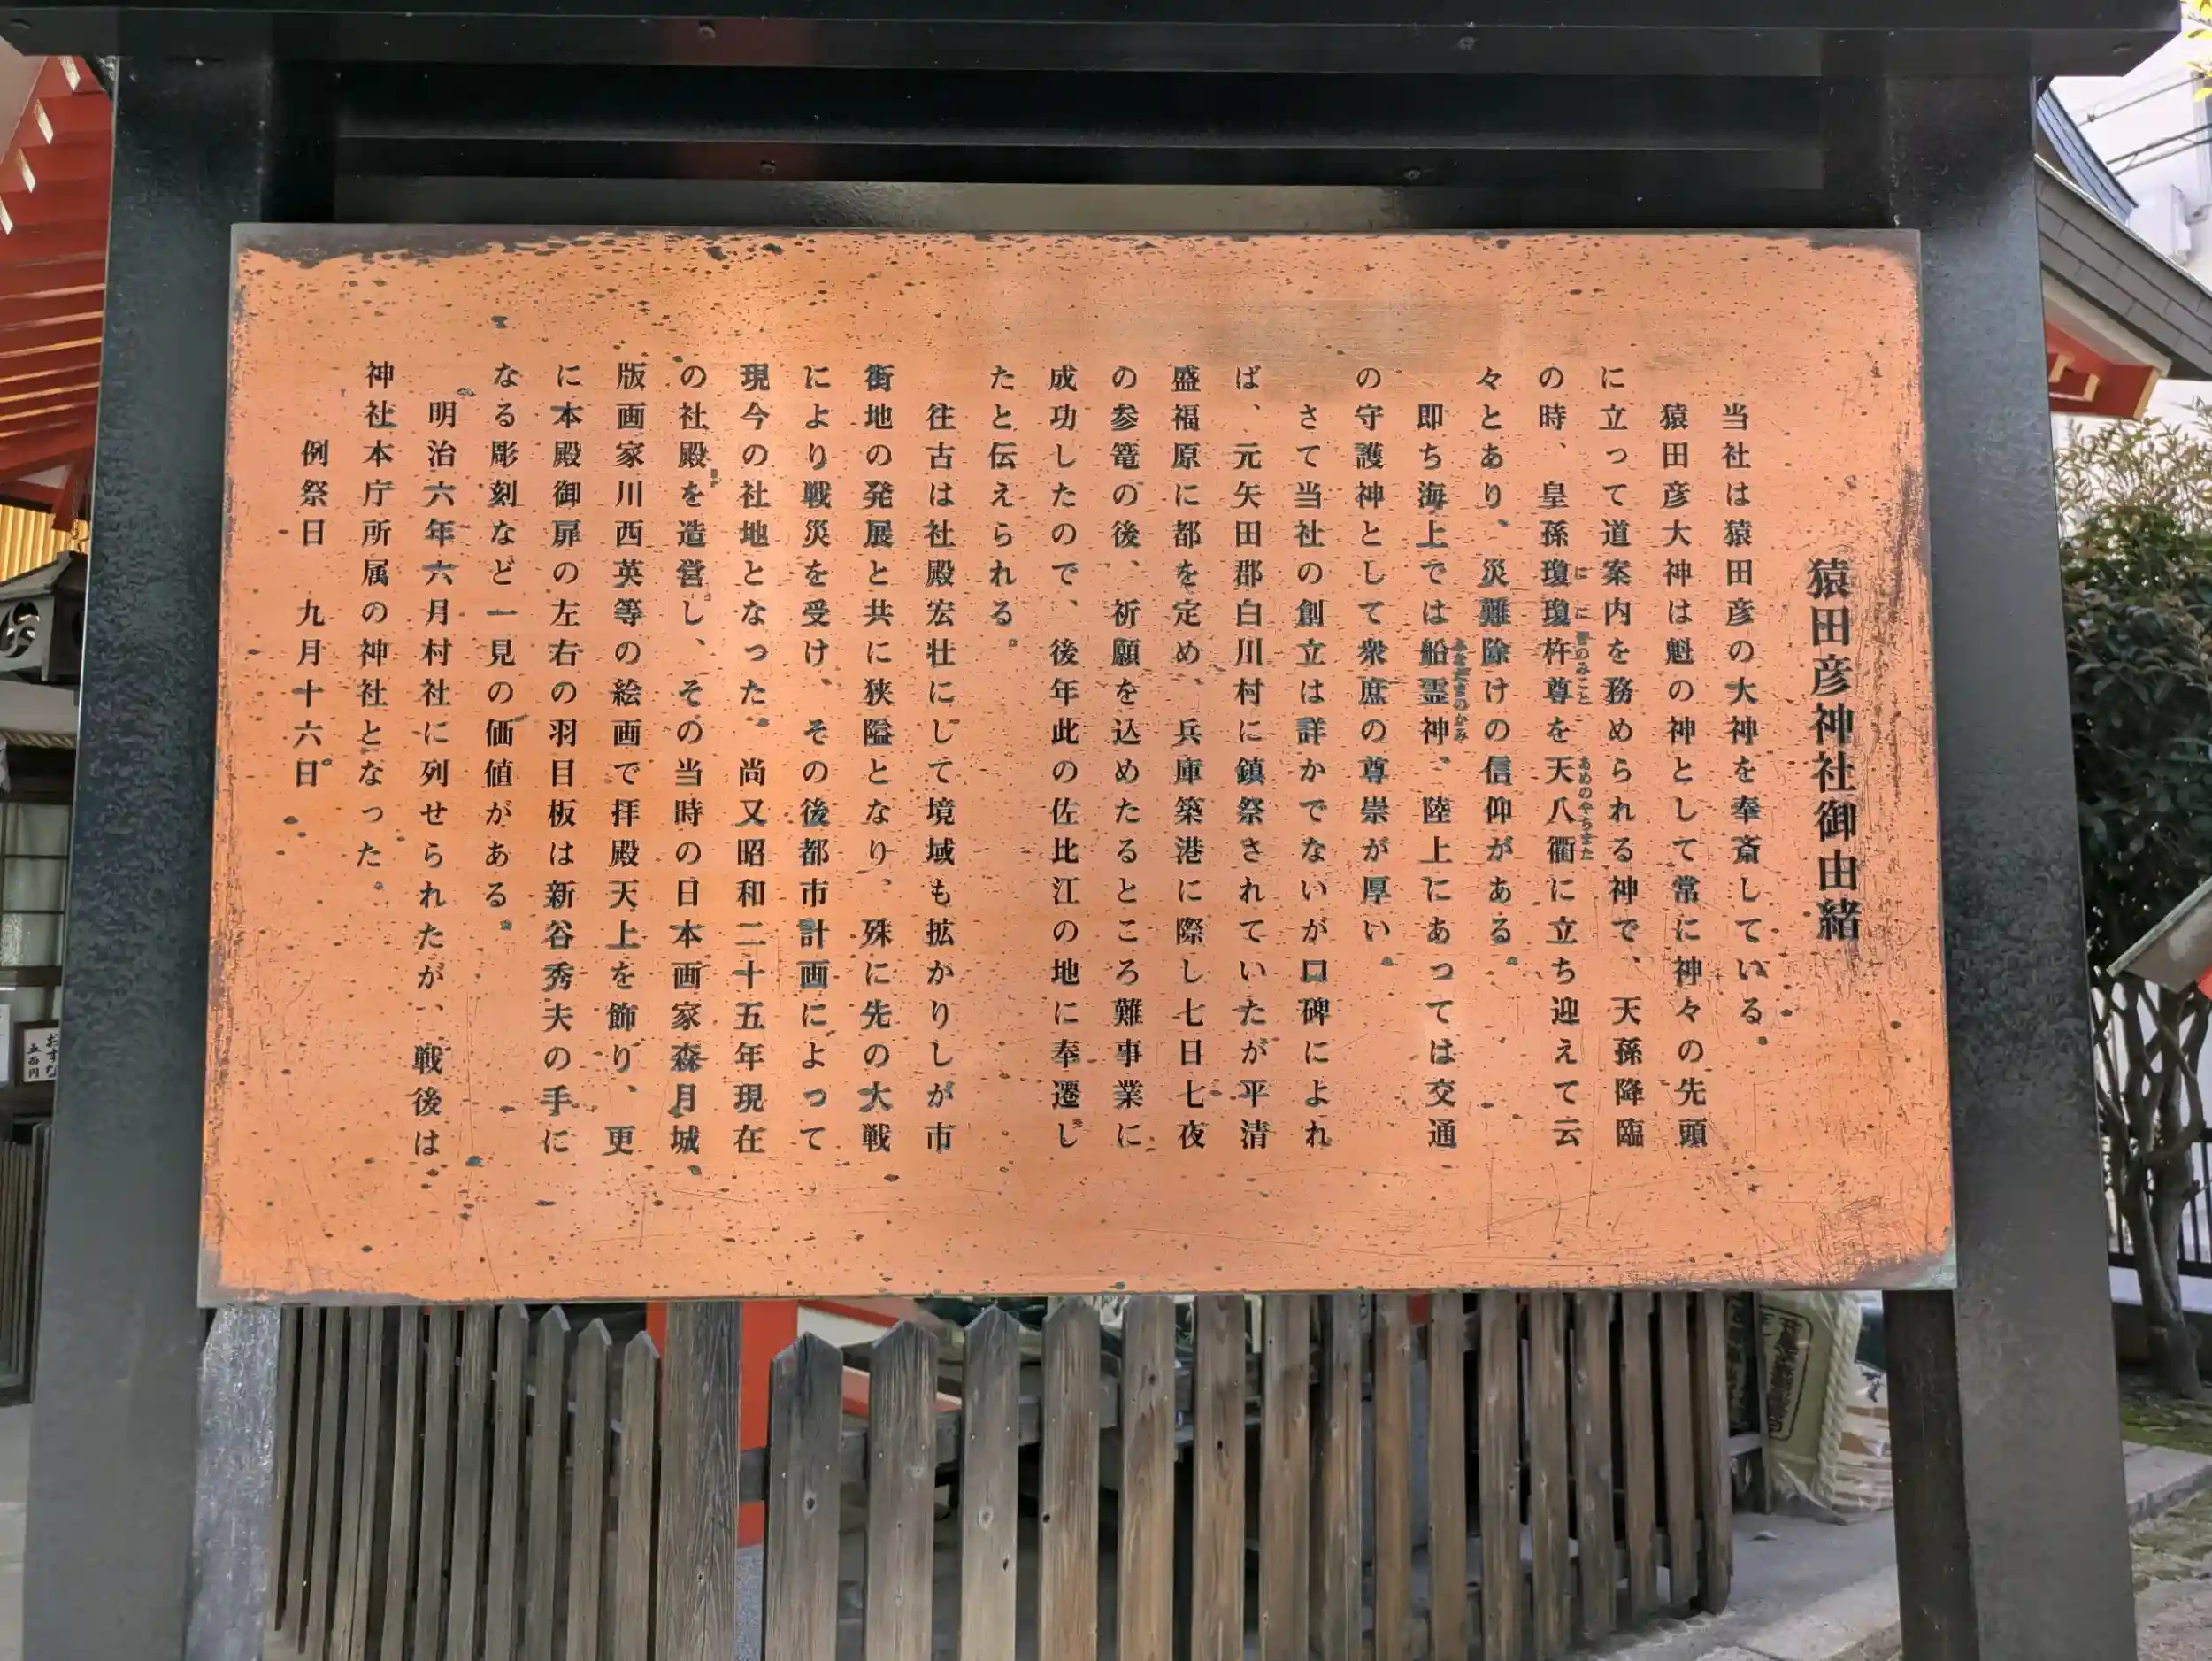 猿田彦神社御由緒
当社は猿田彦の大神を奉斎している。
猿田彦大神は魁の神として常に神々の先頭
に立って道案内を務められる神で、天孫降臨
の時、皇孫瓊瓊杵尊を天八衢に立ち迎えて云
々とあり、災難除けの信仰がある。
即ち海上では船霊神、陸上にあっては交通
の守護神として衆庶の尊崇が厚い。
さて当社の創立は詳かでないが口碑によれ
ば、元矢田部郡白川村に鎮祭されていたが平清
盛福原に都を定め、兵庫築港に際し七日七夜
の参篭の後、祈願を込めたるところ難事業に
成功したので、後年此の佐比江の地に奉遷し
たと伝えられる。
往古は社殿宏壮にして境域も拡かりしが市
街地の発展と共に狭隘となり、殊に先の大戦
により戦災を受け、その後都市計画によって
現今の社地となった。尚又昭和二十五年現在
の社殿を造営し、その当時の日本画家森月城、
版画家川西英等の絵画で拝殿天上を飾り、更
に本殿御扉の左右の羽目板は新谷秀夫の手に
なる彫刻など一見の価値がある。
明治六年六月村社に列せられたが、戦後は
神社本庁所属の神社となった。
例祭日　九月十六日。